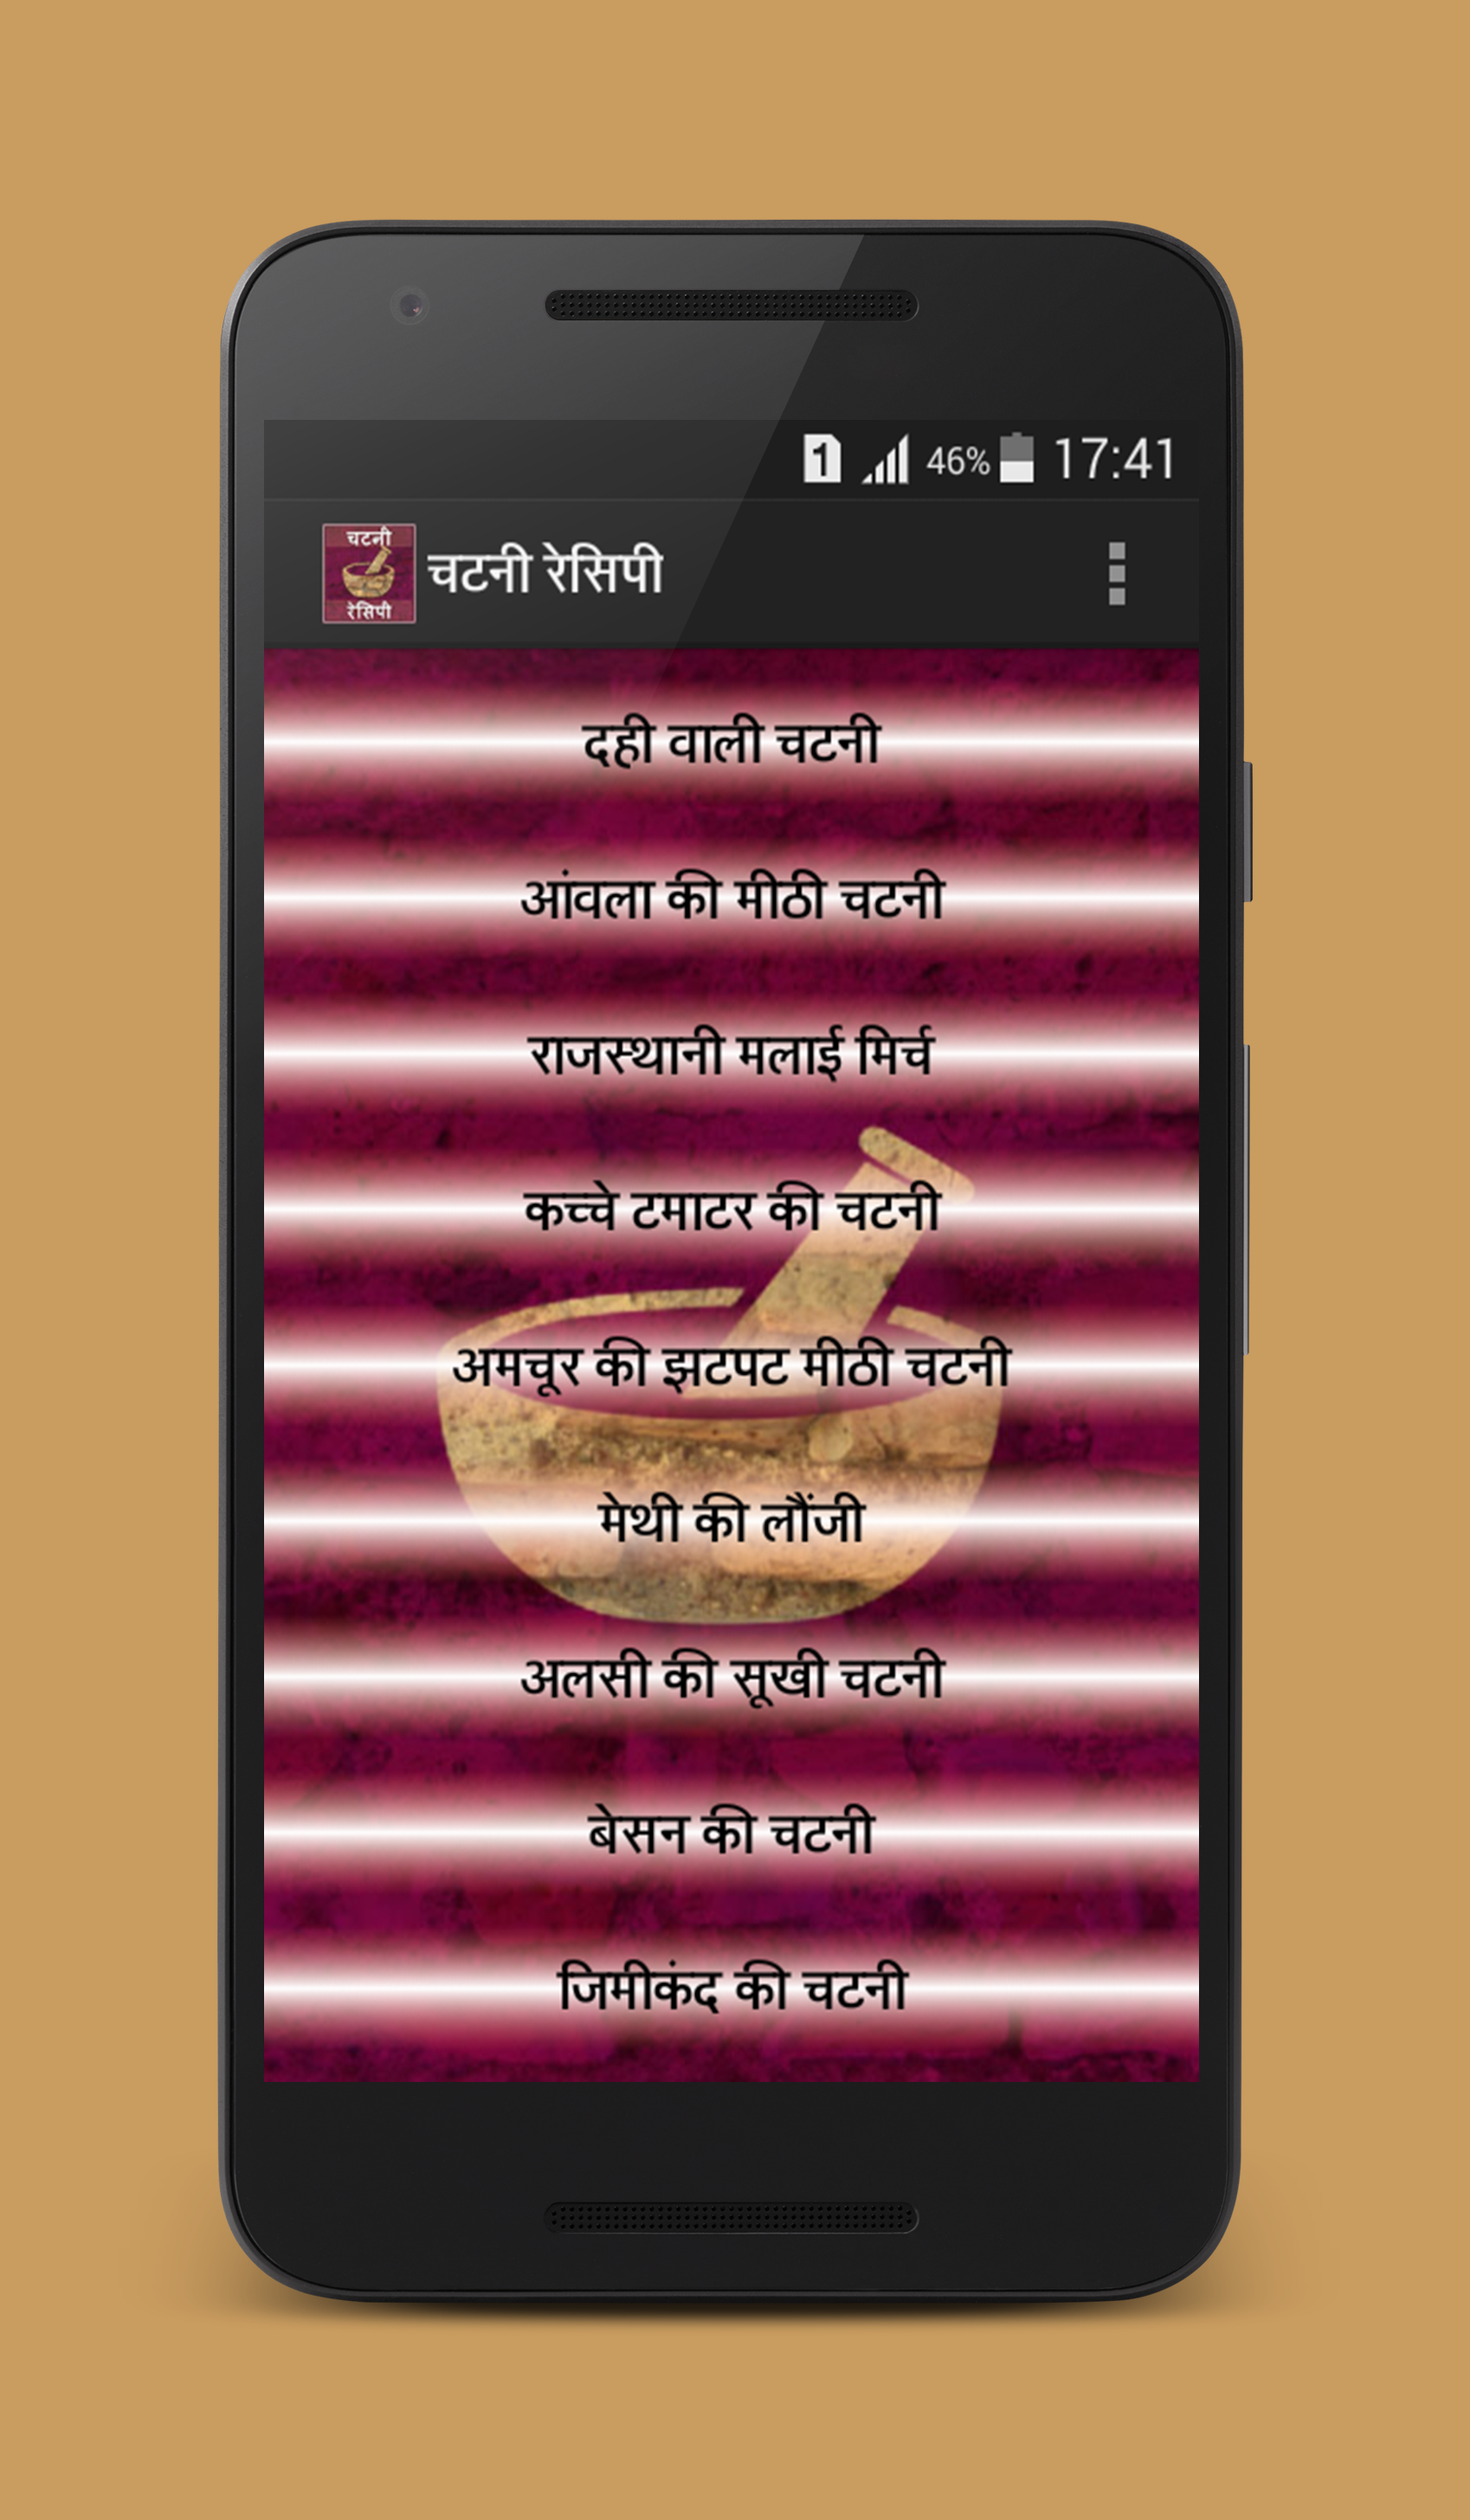 1 46% 17:41
चटनी
रेसिपी
चटनी रेसिपी
दही वाली चटनी
आंवला की मीठी चटनी
राजस्थानी मलाई मिर्च
कच्चे टमाटर की चटनी
अमचूर की झटपट मीठी चटनी
मेथी की लौंजी
अलसी की सूखी चटनी
बेसन की चटनी
जिमीकंद की चटनी